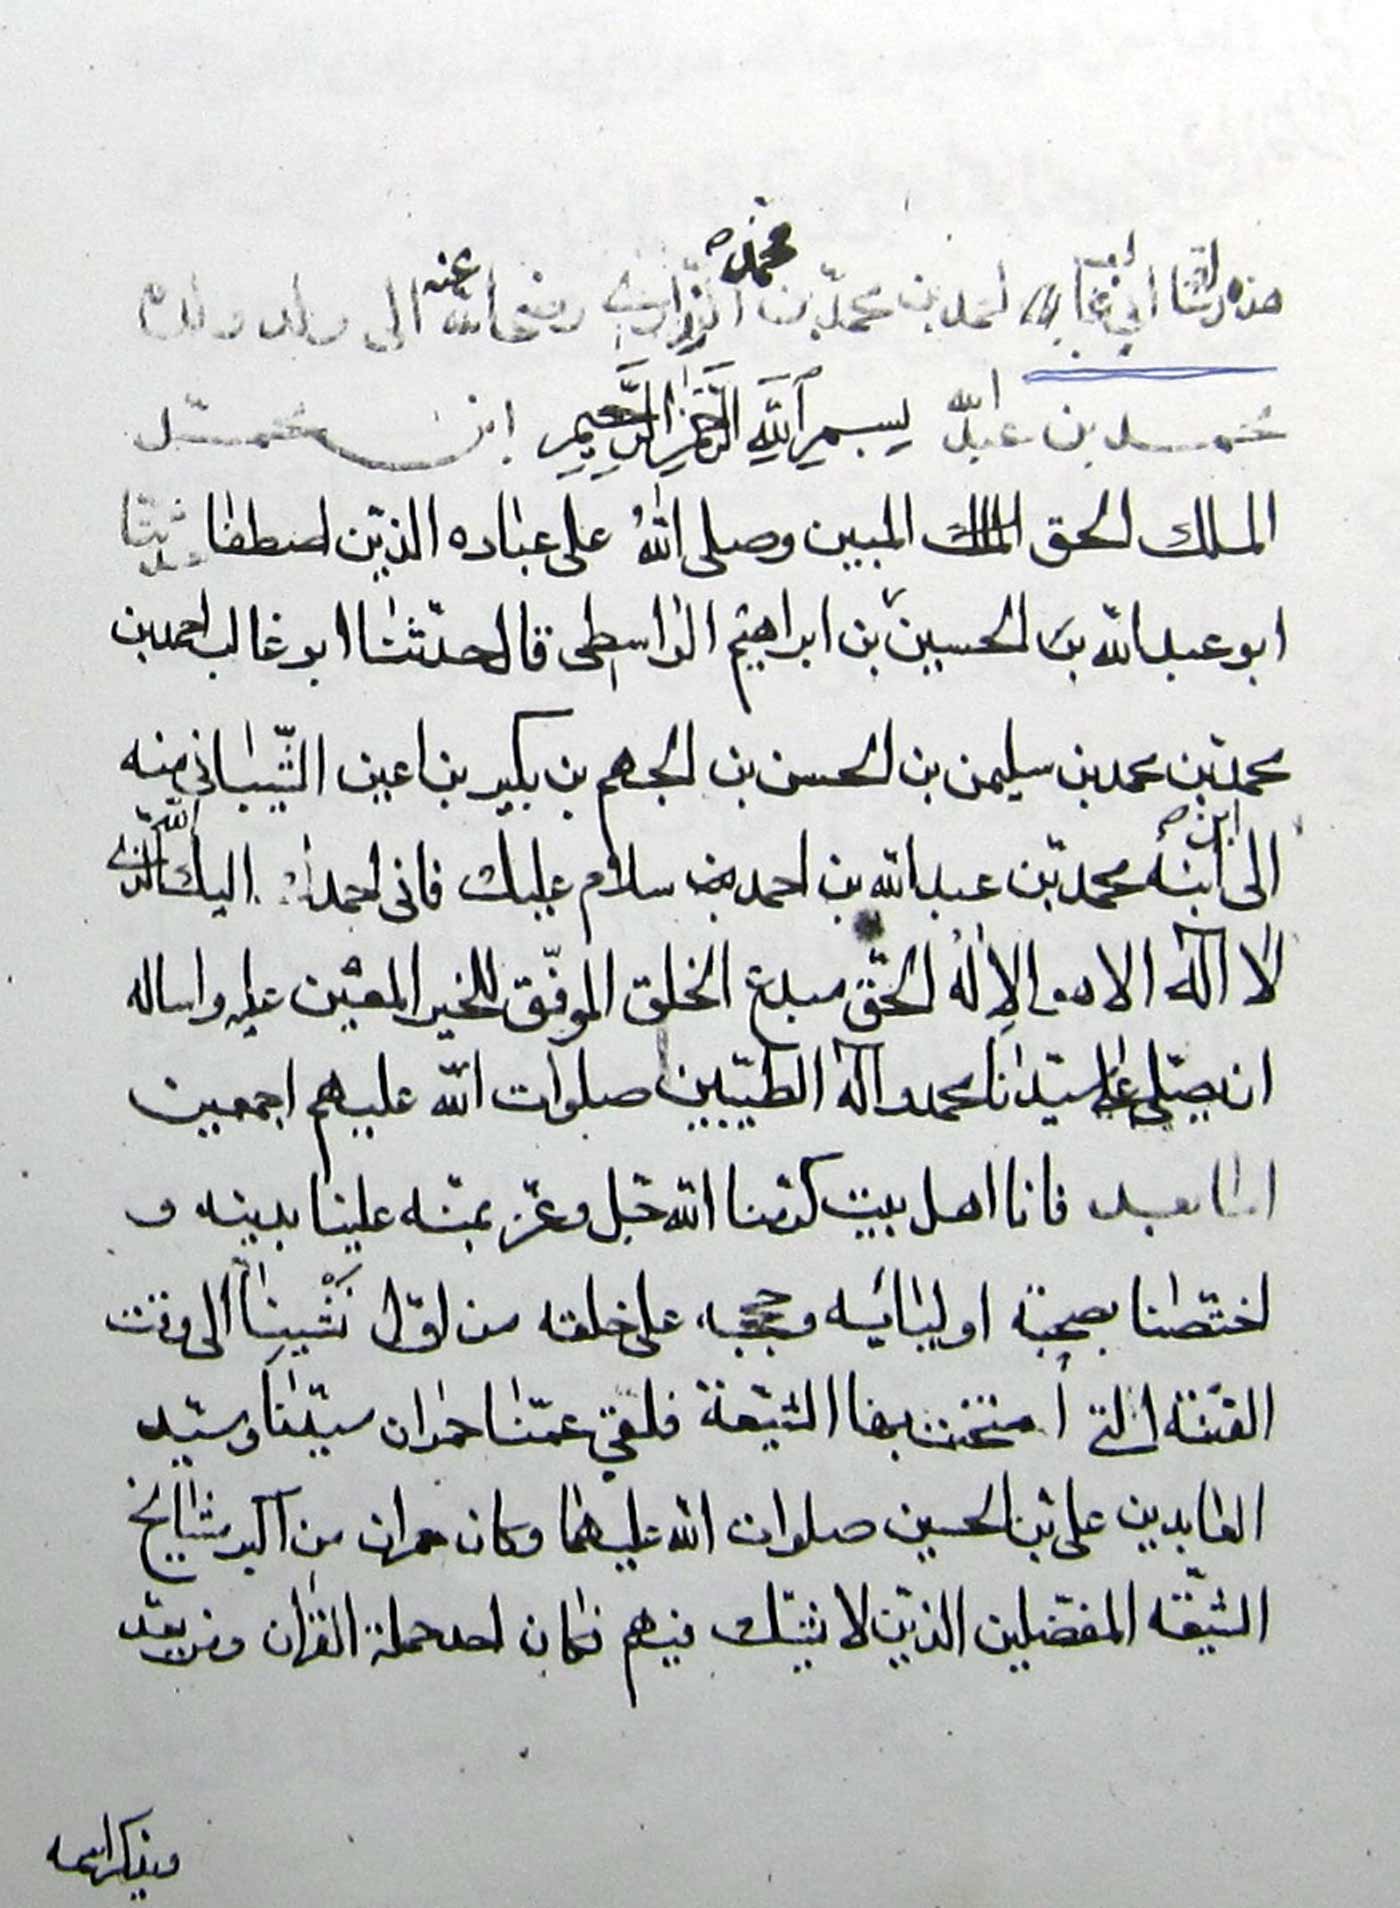 هذه رسالة أبي غالب احمد بن محمد بن محمد الزراري رضي الله عنه الى ولد ولده
محمد بن عبد الله بسم الله الرحمن الرحيم
الملك الحق المبين وصلى الله على عباده الذين اصطفا حدثنا
ابو عبد الله بن الحسين بن ابراهيم الواسطى قال حدثنا ابو غالب احمد بن
محمد بن محمد بن سليمن بن الحسن بن الجهم بن بكير بن اعين الشيباني منه
الى ابن ابنه محمد بن عبد الله بن احمد سلام عليك فانى احمد اليك الله الذي
لا اله الا هو الاله الحق مبدع الخلق الموفق للخير المعين عليه واساله
ان يصلى على سيدنا محمد واله الطيبين صلوات الله عليهم اجمعين
اما بعد فانا اهل بيت كرمنا الله جل وعز بمنه علينا بدينه و
اختصنا بصحبة اوليائه وحججه على خلقه من اول نشيتنا الى وقت
الفتنة التي امتحنت بها الشيعة فلقي عمنا حمران سيدنا وسيد
العابدين على بن الحسين صلوات الله عليهما وكان حمران من اكبر مشايخ
الشيعه المفضلين الذين لا يشك فيهم فكان احد حملة القران ومن يعد
ويذكر اسمه